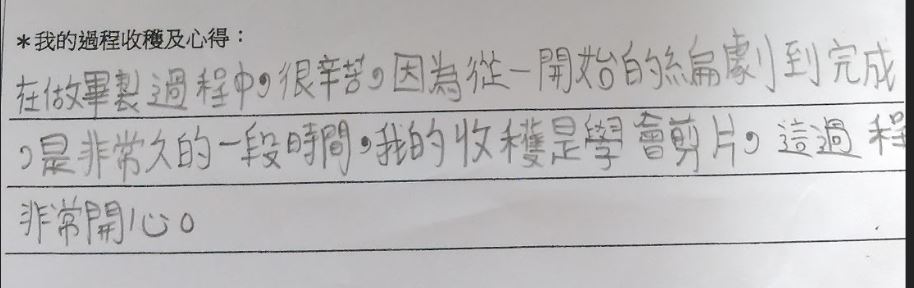 ＊我的過程收穫及心得：
在做畢製過程中，很辛苦，因為從一開始的編劇到完成
，是非常久的一段時間，我的收穫是學會剪片，這過程
非常開心。